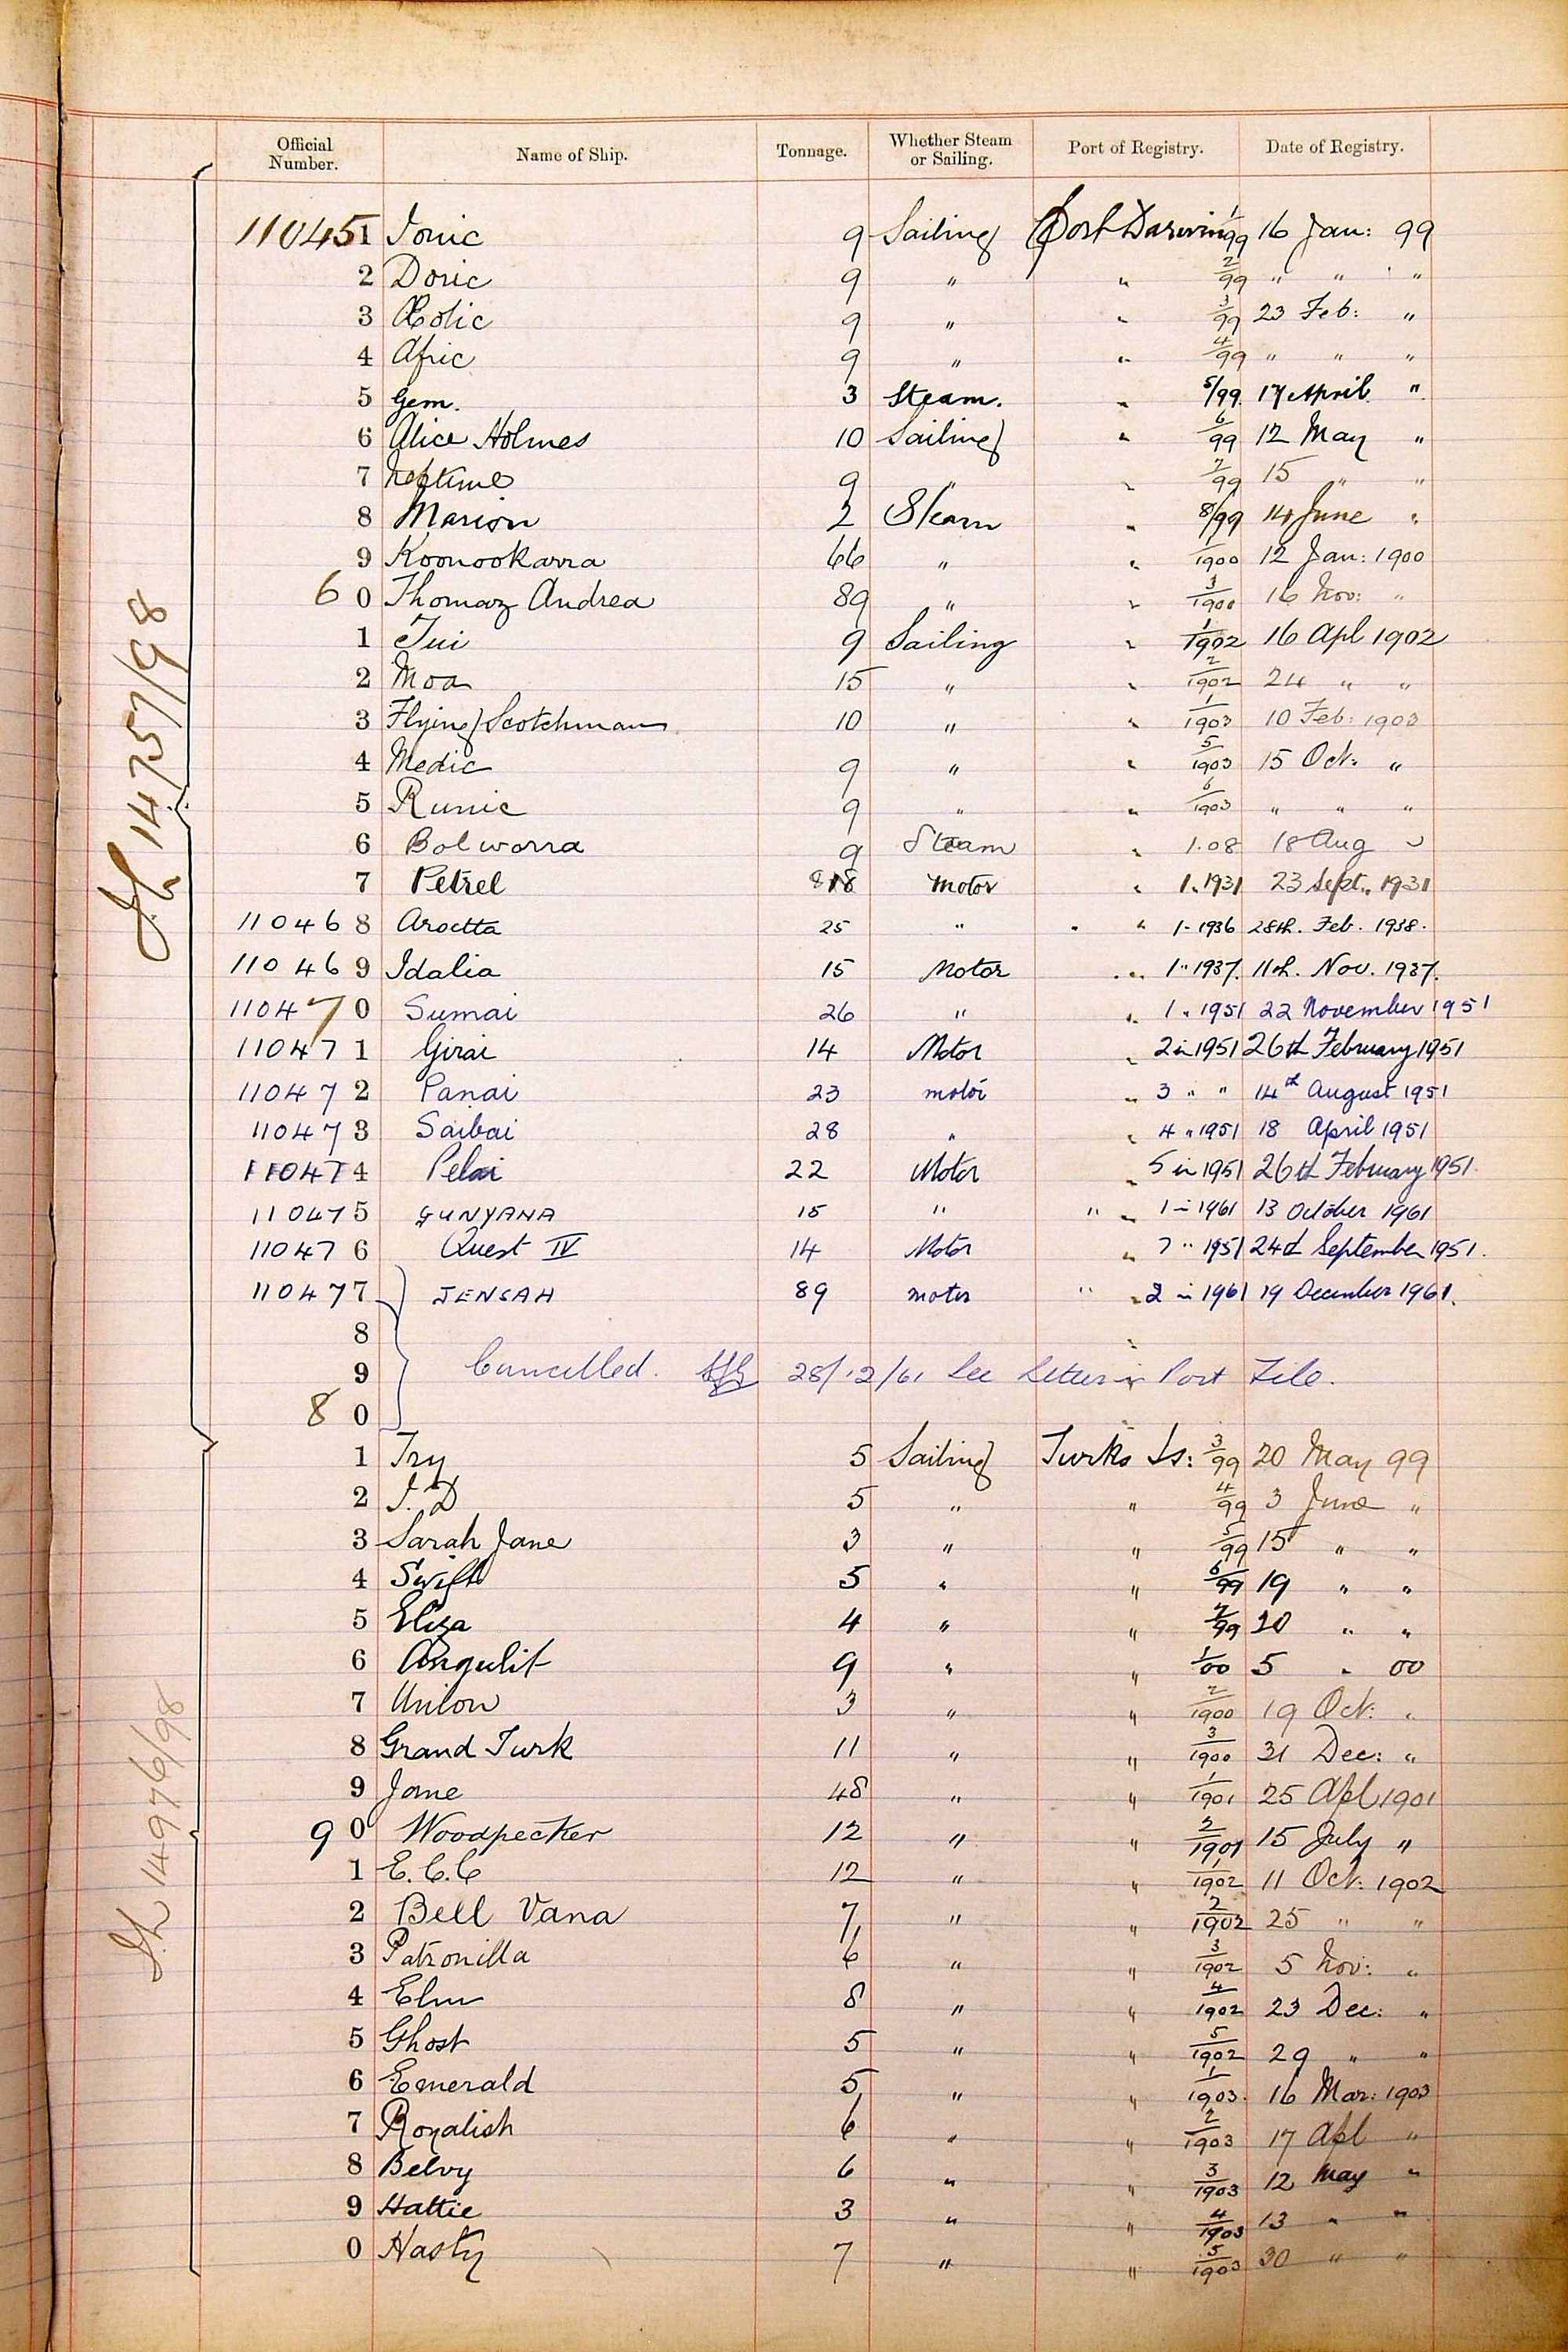 Official Number. Name of Ship. Tonnage. Whether Steam or Sailing. Port of Registry. Date of Registry.
110451 Ionic 9 Sailing Port Darwin 1/99 16 Jan: 99
2 Doric 9 " " 2/99 " " "
3 Æolic 9 " " 3/99 23 Feb: "
4 Afric 9 " " 4/99 " " "
5 Gem. 3 Steam. " 5/99 17 April "
6 Alice Holmes 10 Sailing " 6/99 12 May "
7 Neptune 9 " " 7/99 15 " "
8 Marion 2 Steam " 8/99 14 June "
9 Koonookarra 66 " " 1/1900 12 Jan: 1900
6 0 Thomaz Andrea 89 " " 3/1900 16 Nov: "
1 Tui 9 Sailing " 1/1902 16 Apl 1902
2 Moa 15 " " 2/1902 24 " "
3 Flying Scotchman 10 " " 1/1903 10 Feb: 1903
4 Medic 9 " " 5/1903 15 Oct: "
5 Runic 9 " " 6/1903 " " "
6 Bolworra 9 Steam " 1.08 18 Aug "
7 Petrel Motor " 1.1931 23 Sept. 1931
110468 Aroetta 25 " " " 1-1936 28th. Feb. 1938.
110469 Idalia 15 Motor " 1"1937. 11th. Nov. 1937.
110470 Sumai 26 " " 1 " 1951 22 November 1951
110471 Girai 14 Motor " 2 in 1951 26th February 1951
110472 Panai 23 motor " 3 " " 14th August 1951
110473 Saibai 28 " " 4 " 1951 18 April 1951
110474 Pelai 22 Motor " 5 in 1951 26th February 1951.
110475 GUNYANA 15 " " " 1 in 1961 13 October 1961
110476 Quest IV 14 Motor " 7 " 1951 24th September 1951.
110477 JENSAH 89 motor " " 2 in 1961 19 December 1961.
8 "
9 Cancelled. 28/12/61 See Letter in Port File.
8 0
1 Try 5 Sailing Turks Is: 3/99 20 May 99
2 I.D 5 " " 4/99 3 June "
3 Sarah Jane 3 " " 5/99 15 " "
4 Swift 5 " " 6/99 19 " "
5 Eliza 4 " " 7/99 20 " "
6 Angulit 9 " " 1/00 5 " 00
7 Union 3 " " 2/1900 19 Oct: "
8 Grand Turk 11 " " 3/1900 31 Dec: "
9 Jane 48 " " 1/1901 25 Apl 1901
9 0 Woodpecker 12 " " 2/1901 15 July "
1 E.C.C 12 " " 1/1902 11 Oct: 1902
2 Bell Vana 7 " " 2/1902 25 " "
3 Patronilla 6 " " 3/1902 5 Nov: "
4 Elm 8 " " 4/1902 23 Dec: "
5 Ghost 5 " " 5/1902 29 " "
6 Emerald 5 " " 1/1903. 16 Mar: 1903
7 Royalist 6 " " 2/1903 17 Apl "
8 Belvy 6 " " 3/1903 12 May "
9 Hattie 3 " " 4/1903 13 " "
0 Hasty 7 " " 5/1903 30 " "
14757/98
14976/98